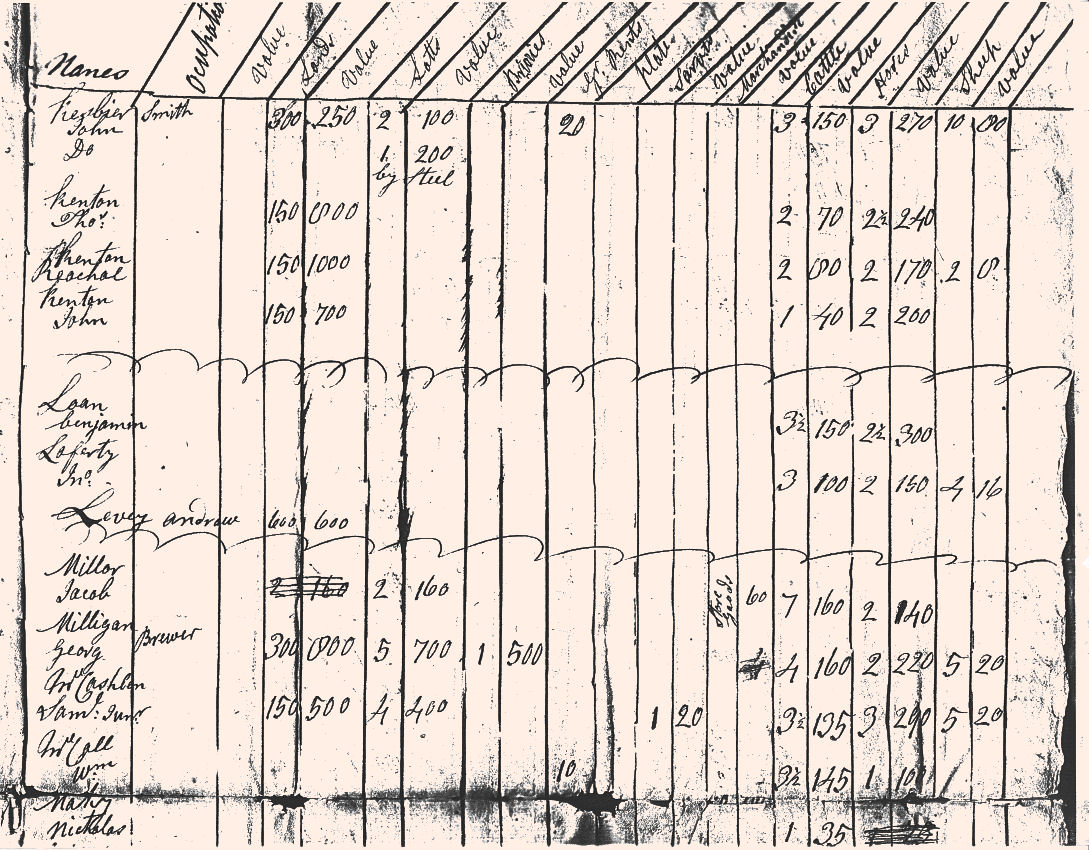 Names Occupatio Value Lands Value Lotts Value Value Gr. Rents Value Merchandise Value Cattle Value Horses Value Sheep Value
John Smith 300 250 2 100 20 3 150 3 270 10 80
Do 1 200
by Steel
Kenton
Thos. 150 800 2 70 2½ 240
Kenton
Reachal 150 1000 2 80 2 170 2 8
Kenton
John 150 700 1 40 2 200
Loan
benjamin 3½ 150 2½ 300
Laferty
Jno. 3 100 2 150 4 16
Levey andrew 600 600
Millor
Jacob 2 160 2 160 60 7 160 2 140
Milligan
Georg Brewer 300 800 5 700 1 500 4 160 2 220 5 20
McCashlen
Saml. Junr 150 500 4 400 1 20 3½ 135 3 290 5 20
McCall
Wm 10 3½ 145 1 100
Nicholas 1 35